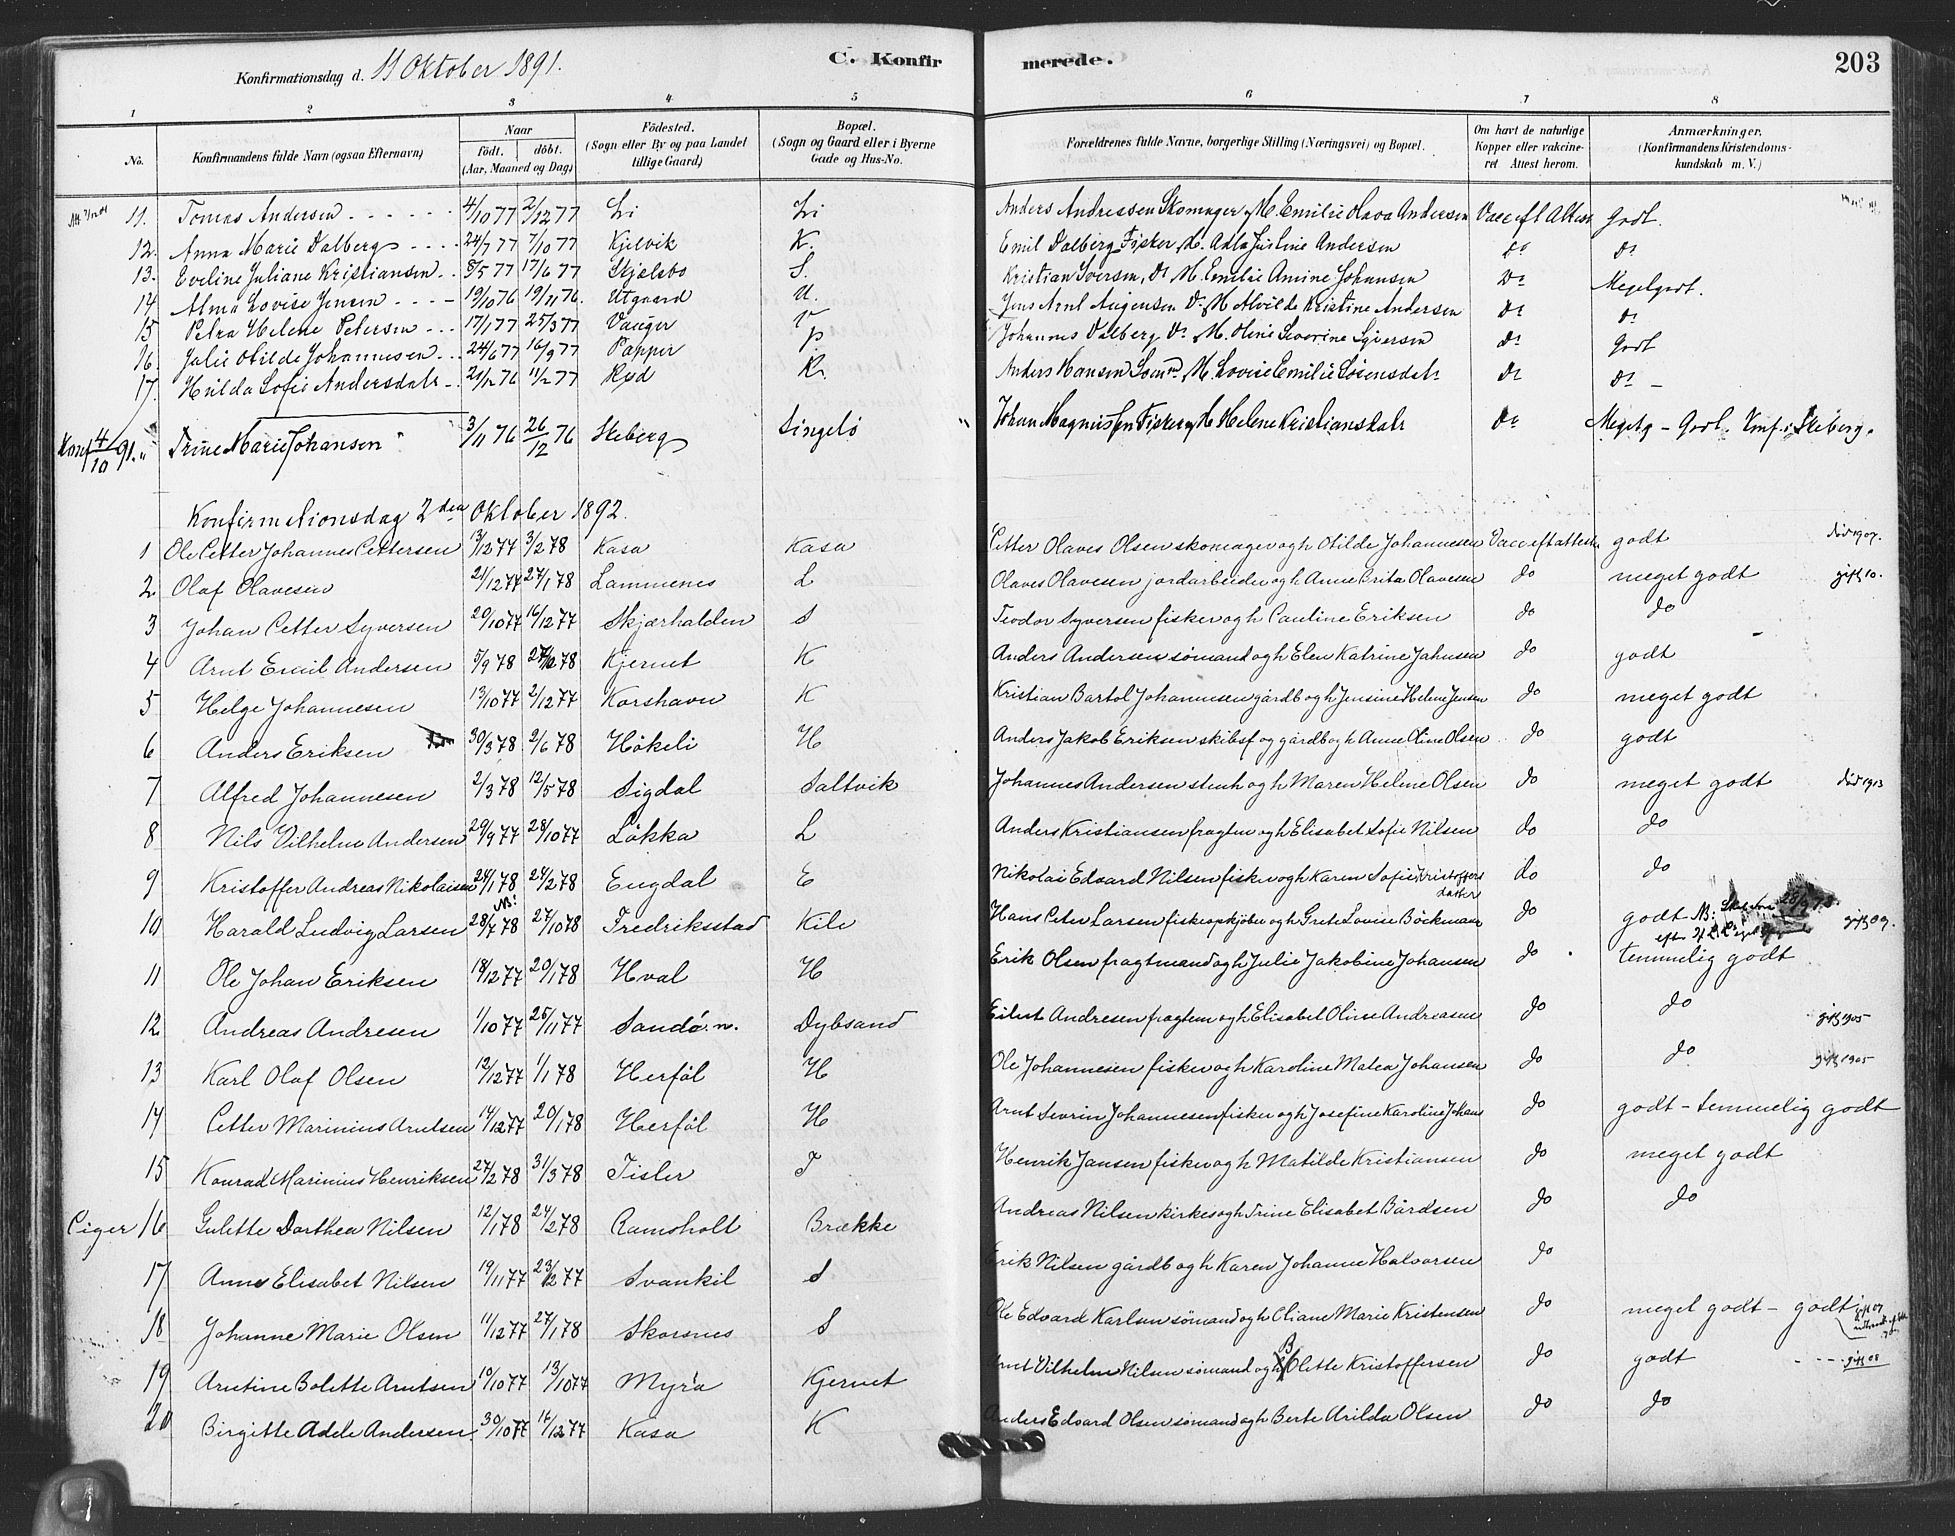 Konfirmationsdag d. 11 Oktober 1891. C. Konfirmerede. 203
1 2 3 4 5 6 7 8
No. Konfirmandens fulde Navn (ogsaa Efternavn) Naar födt. döbt. (Aar, Maaned og Dag) Födested. (Sogn eller By og paa Landet tillige Gaard) Bopæl. (Sogn og Gaard eller i Byerne Gade og Hus-No. Forældrenes fulde Navne, borgerlige Stilling (Næringsvei) og Bopæl. Om havt de naturlige Kopper eller vakcineret Attest herom. Anmærkninger. (Konfirmandens Kristendomskundskab m. V.)
11. Tomas Andersen 4/10 77 2/12 77 Li Li Anders Andressen Skomager, M. Emilie Olava Andersen Vacc eft Attest Godt.
12. Anna Marie Dalberg 24/7 77 7/10 77 Kjelvik K. Emil Dalberg Fisker M. Adla Justine Andersen do do
13. Eveline Juliane Kristiansen 8/5 77 17/6 77 Skjelsbo S. Kristian Iversen, do M. Emilie Amine Johansen do Megetgodt.
14 Alma Lovise Jensen 19/10 76 19/11 76. Utgaard U. Jens Arnt Augensen do M Alvilde Kristine Andersen do do
15 Petra Helene Petersen 17/1 77 25/3 77 Vauger V Johannes Dalberg do M. Oline Severine Syversen do Godt
16. Julie Otilde Johannesen 24/6 77 16/9 77 Papper P.
17. Hulda Sofie Andersdatr 21/12 76 11/2 77 Rød R. Anders Hansen Sømd M. Lovise Emilie Sørensdatr do do
Konf 4/10 91. Trine Marie Johansen 3/11 76 26/12 76 Skeberg Singelö Johan Magnussen Fisker og M Helene Kristiansdatr do Megetg - Godt. Konf. i Skeberg.
Konfirmationsdag 2den Oktober 1892.
1 Ole Petter Johannes Pettersen 3/12 77 3/2 78 Kasa Kasa Petter Olaves Olsen skomager og h Otilde Johannesen Vacc eft attest godt död 1907.
2 Olaf Olavesen 21/12 77 27/1 78 Lammenes L Olaves Olavesen jordarbeider og h Anne Brita Olavesen do meget godt gift 10.
3 Johan Petter Syversen 20/10 77 16/12 77 Skjærhalden S Teodor Syversen fisker og h Pauline Eriksen do do
4 Arnt Emil Andersen 5/9 78 78 Kjernet K Anders Andersen sömand og h Elen Katrine Jahnsen do godt
5 Helge Johannesen 13/10 77 2/12 77 Korshavn K Kristian Bartol Johannesen gårdb og h Jensine Helene Jensen do meget godt
6 Anders Eriksen 30/3 78 2/6 78 Hökeli H Anders Jakob Eriksen skibsf og gårdb og h Anne Oline Olsen do godt
7 Alfred Johannesen 2/3 78 12/5 78 Sigdal Saltvik Johannes Andersen stenh og h Maren Helene Olsen do meget godt död 1913
8 Nils Vilhelm Andersen 29/9 77 28/10 77 Lökka L Anders Kristiansen fragtm og h Elisabet Sofie Nilsen do do
9 Kristoffer Andreas Nikolaisen 24/1 78 24/2 78 Engdal E Nikolai Edvard Nilsen fisker og h Karen Sofie Kristoffersdatter do do
10 Harald Ludvig Larsen NB: 28/7 78 27/10 78 Fredriksstad Kile Hans Peter Larsen fiskeopkjöber og h Grete Lovine Böckmann do godt NB: gift 09.
11 Ole Johan Eriksen 18/12 77 20/1 78 Hval H Erik Olsen fragtmand og h Julie Jakobine Johansen do temmelig godt
12 Andreas Andresen 1/10 77 25/11 77 Sandö. n. Dybsand Eilert Andresen fragtm og h Elisabet Oline Andreasen do do gift 1905
13 Karl Olaf Olsen 12/12 77 1/1 78 Herföl H Ole Johannesen fisker og h Karoline Matea Johansen do do gift 1905
14 Petter Marinius Arntsen 14/12 77 20/1 78 Herföl H Arnt Sevrin Johannesen fisker og h Josefine Karoline Johans do godt - temmelig godt
15 Konrad Marinius Henriksen 27/2 78 31/3 78 Tisler T Henrik Jansen fisker og h Matilde Kristiansen do meget godt
Piger 16 Gulette Dorthea Nilsen 12/1 78 24/2 78 Ramsholt Brække Andreas Nilsen kirkes og h Trine Elisabet Bårdsen do do
17 Anne Elisabet Nilsen 19/11 77 23/12 77 Svankil S Erik Nilsen gårdb og h Karen Johanne Halvorsen do
18 Johanne Marie Olsen 11/12 77 27/1 78 Skorsnes S Ole Edvard Karlsen sömand og h Oliane Marie Kristensen do meget godt - godt gift 07
19 Arntine Bolette Arntsen 10/10 77 13/10 77 Myra Kjernet Arnt Vilhelm Nilsen sömand og h BOlette Kristoffersen do godt gift 08
20 Birgitte Adele Andersen 30/10 77 16/12 77 Kasa K Anders Edvard Olsen sömand og h Berte Arilda Olsen do do